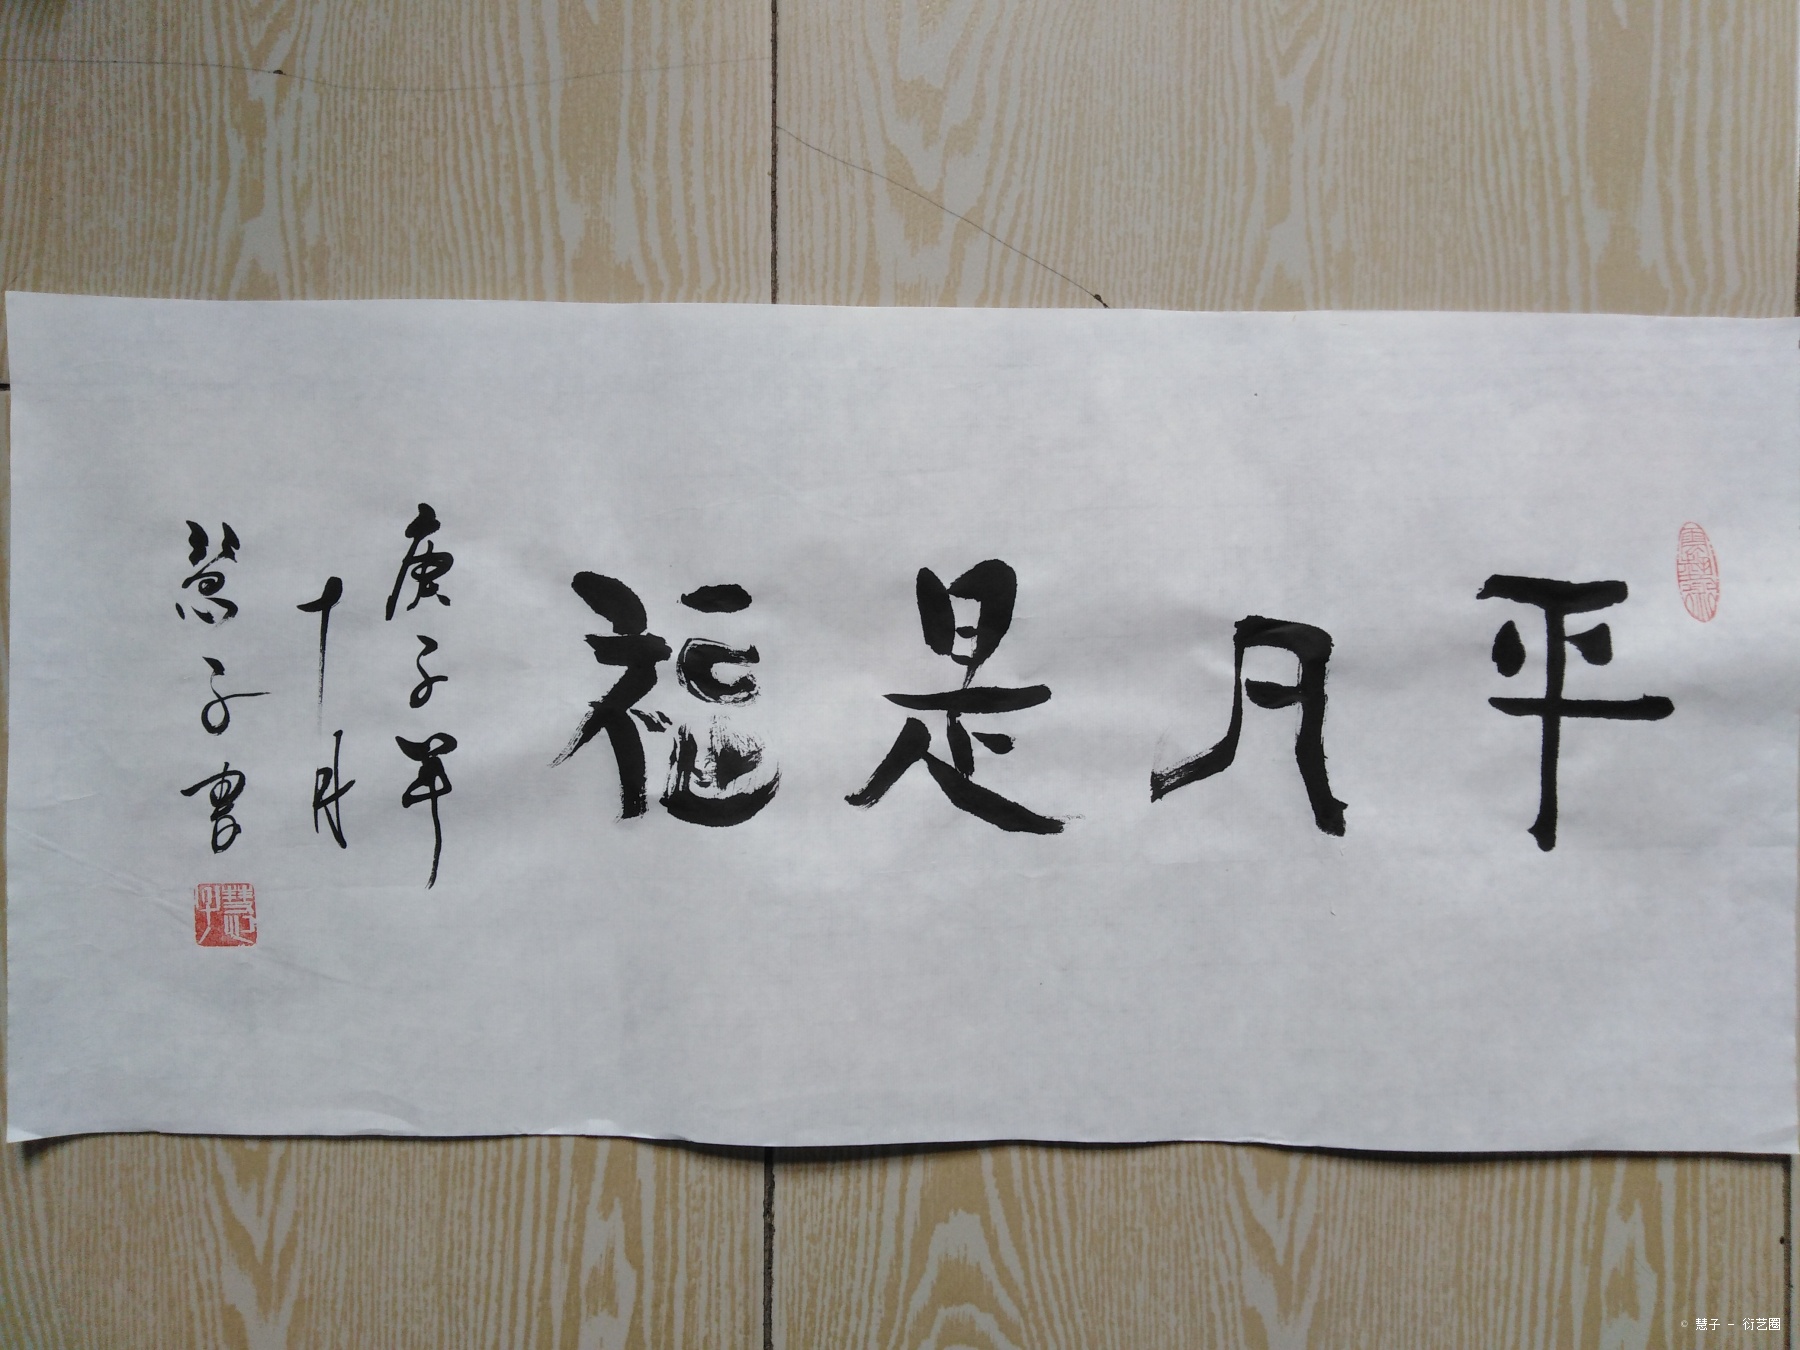 平凡是福
庚子年
十月
慧子書
慧子
© 慧子 - 衍艺圈